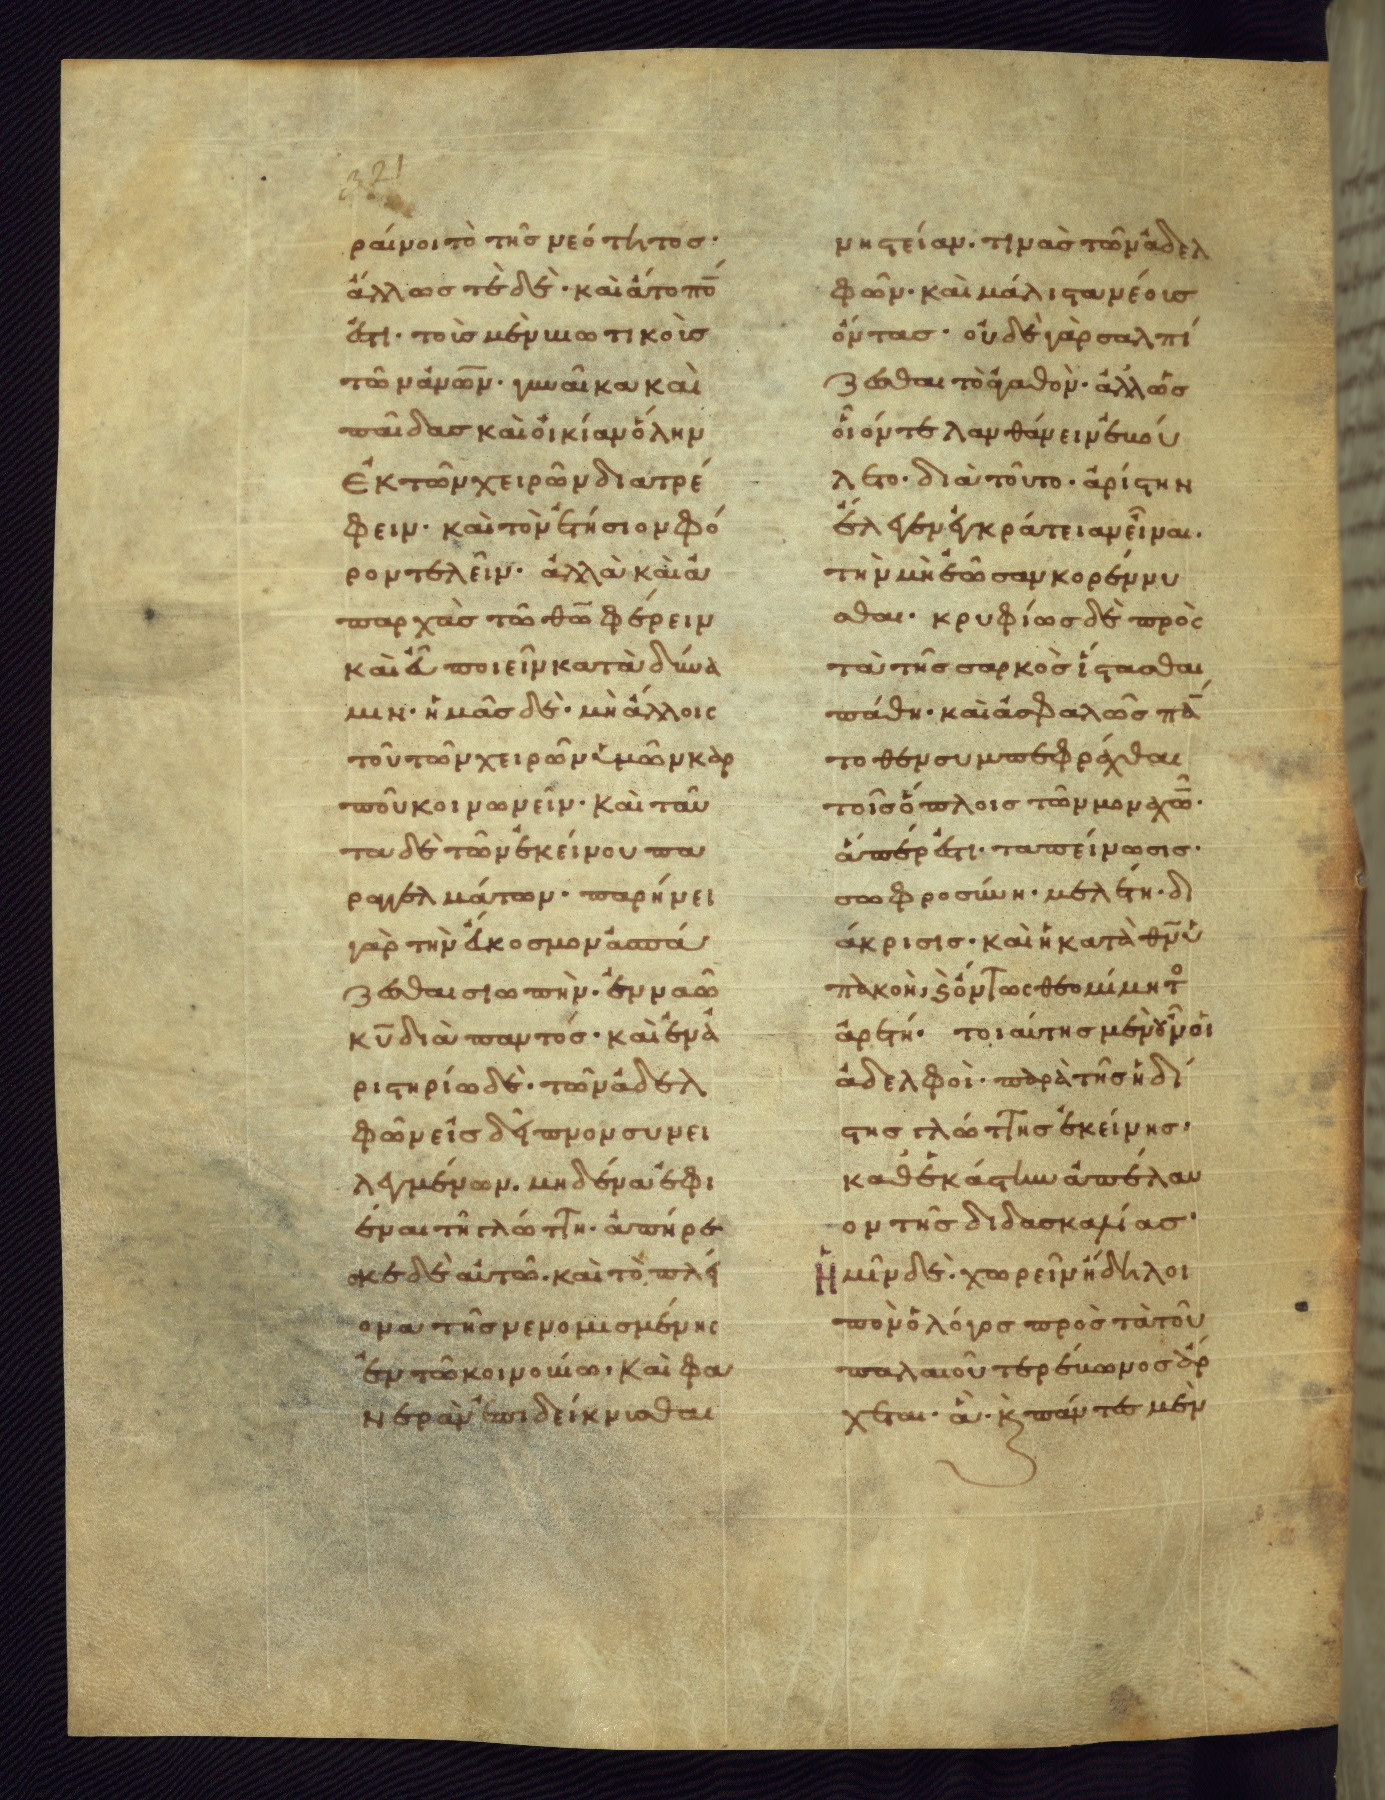 321
ραίνοι τὸ τῆς νεότητος·
ἄλλωστε δὲ· καὶ ἄτοπον
ἐστι· τοῖς μὲν βιωτικοῖς
τῶν ἀνων· γυναῖκα καὶ
παῖδας καὶ οἰκίαν ὅλην
ἐκ τῶν χειρῶν διατρέ
φειν· καὶ τὸν ἐτήσιον φό
ρον τελεῖν· ἀλλὰ καὶ ἀ
παρχὰς τῶ θω φέρειν
καὶ εὖ ποιεῖν κατὰ δύνα
μιν· ἡμᾶς δὲ· μὴ ἄλλοις
τοῦ τῶν χειρῶν ἡμῶν καρ
ποῦ κοινωνεῖν· καὶ ταῦ
τα δὲ τῶν ἐκείνου πα
ραγγελμάτων· παρήνει
γὰρ τὴν εὔκοσμον ἀσπά
ζεσθαι σιωπήν· ἐν ναῶ
κυ διὰ παντός· καὶ ἐν ἀ
ριστηρίω δὲ· τῶν ἀδελ
φῶν εἰς δεῖπνον συνει
λεγμένων· μηδένα ἐφι
έναι τῆ γλώττη· ἀπήρε
σκε δὲ αὐτῶ· καὶ τὸ πλέ
ονα τῆς νενομισμένης
ἐν τῶ κοινοβίω· καὶ φα
νερὰν ἐπιδείκνυσθαι
νηστείαν· τινὰς τῶν ἀδελ
φῶν· καὶ μάλιστα νέοις
ὄντας· οὐδὲ γὰρ σαλπί
ζεσθαι τὸ ἀγαθὸν· ἀλλ' ὡς
οἷόν τε λανθάνειν ἐβού
λετο· διὰ τοῦτο· ἀρίστην
ἔλεγεν ἐγκράτειαν εἶναι·
τὴν μὴ ἐῶσαν κορέννυ
σθαι· κρυφίως δὲ πρὸς
τὰ τῆς σαρκὸς ἵστασθαι
πάθη· καὶ ἀσφαλῶς πάν
τοθεν συμπεφράχθαι
τοῖς ὅπλοις τῶν μοναχῶν·
ἅπέρ ἐστι· ταπείνωσις·
σωφροσύνη· μελέτη· δι
άκρισις· καὶ ἡ κατὰ θν ὑ
πακοὴ, ἡ ὄντως θεομίμητος
ἀρετή· τοιαύτης μὲν οὖν οἱ
ἀδελφοὶ· παρὰ τῆς ἡδί
στης γλώττης ἐκείνης·
καθ' ἑκάστην ἀπέλαυ
ον τῆς διδασκαλίας·
Ἡμῖν δὲ· χωρεῖν ἤδη λοι
πὸν ὁ λόγος πρὸς τὰ τοῦ
παλαιοῦ τερέβωνος ἄρ
χεται· ἃ· καὶ πάντε μὲν